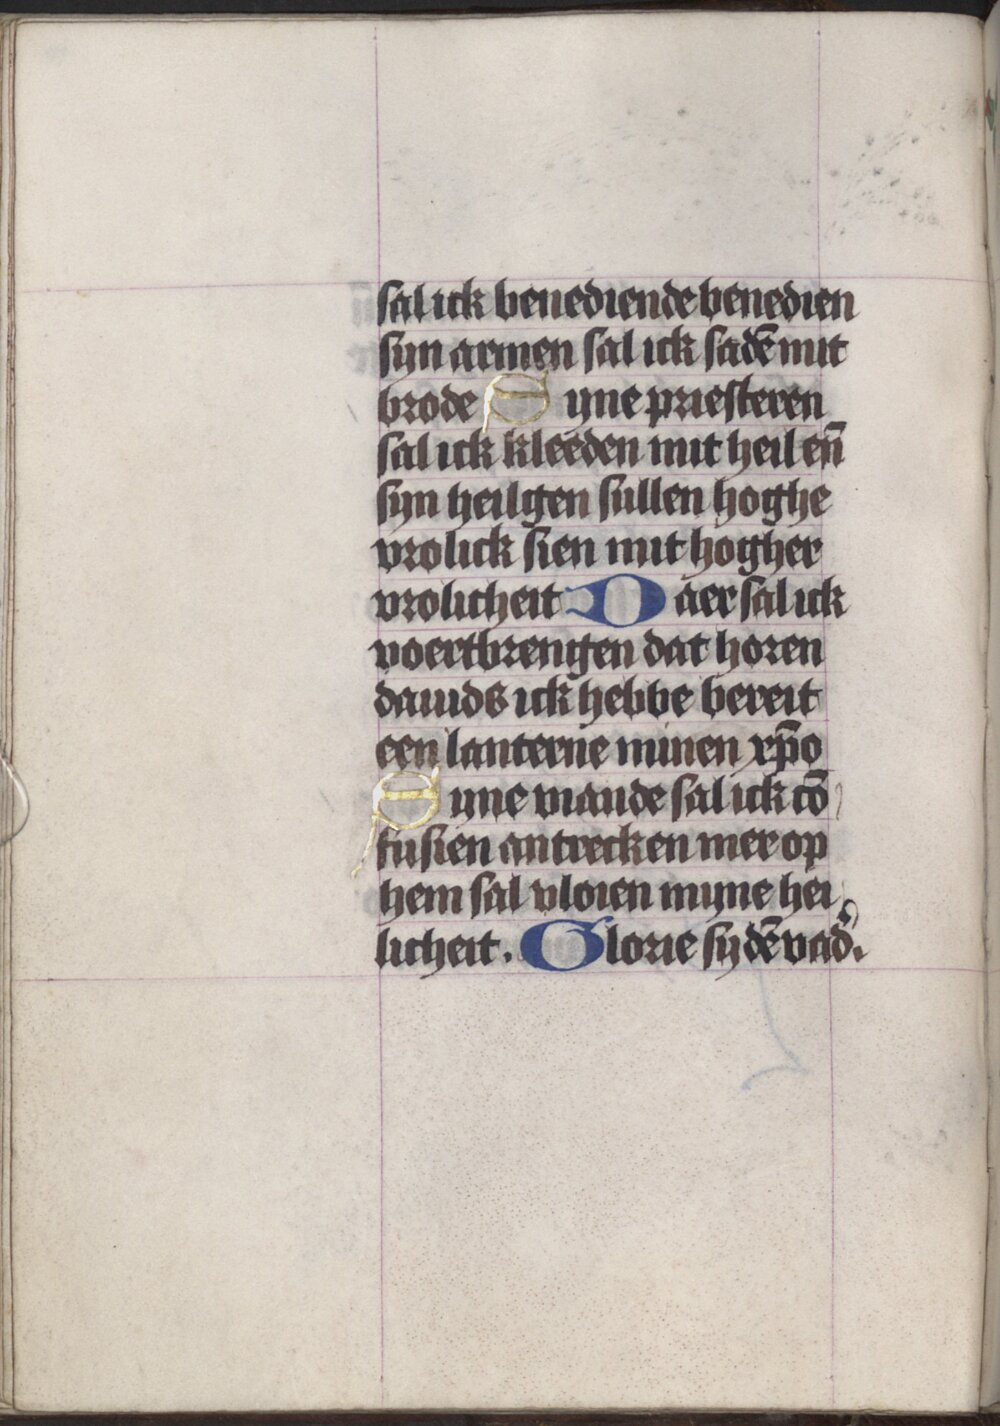 sal ick benediende benedien
syn armen sal ick sadē mit
brode Syne priesteren
sal ick kleeden mit heil eñ
syn heilgen sullen hoghe
vrolick sien mit hogher
vrolicheit Daer sal ick
voertbrengen dat horen
dauids ick hebbe bereit
een lanterne minen xp̄o
Syne viande sal ick cō
fusien antrecken mer op
hem sal vloien myne hei
licheit. Glorie sy dē vad᷒.